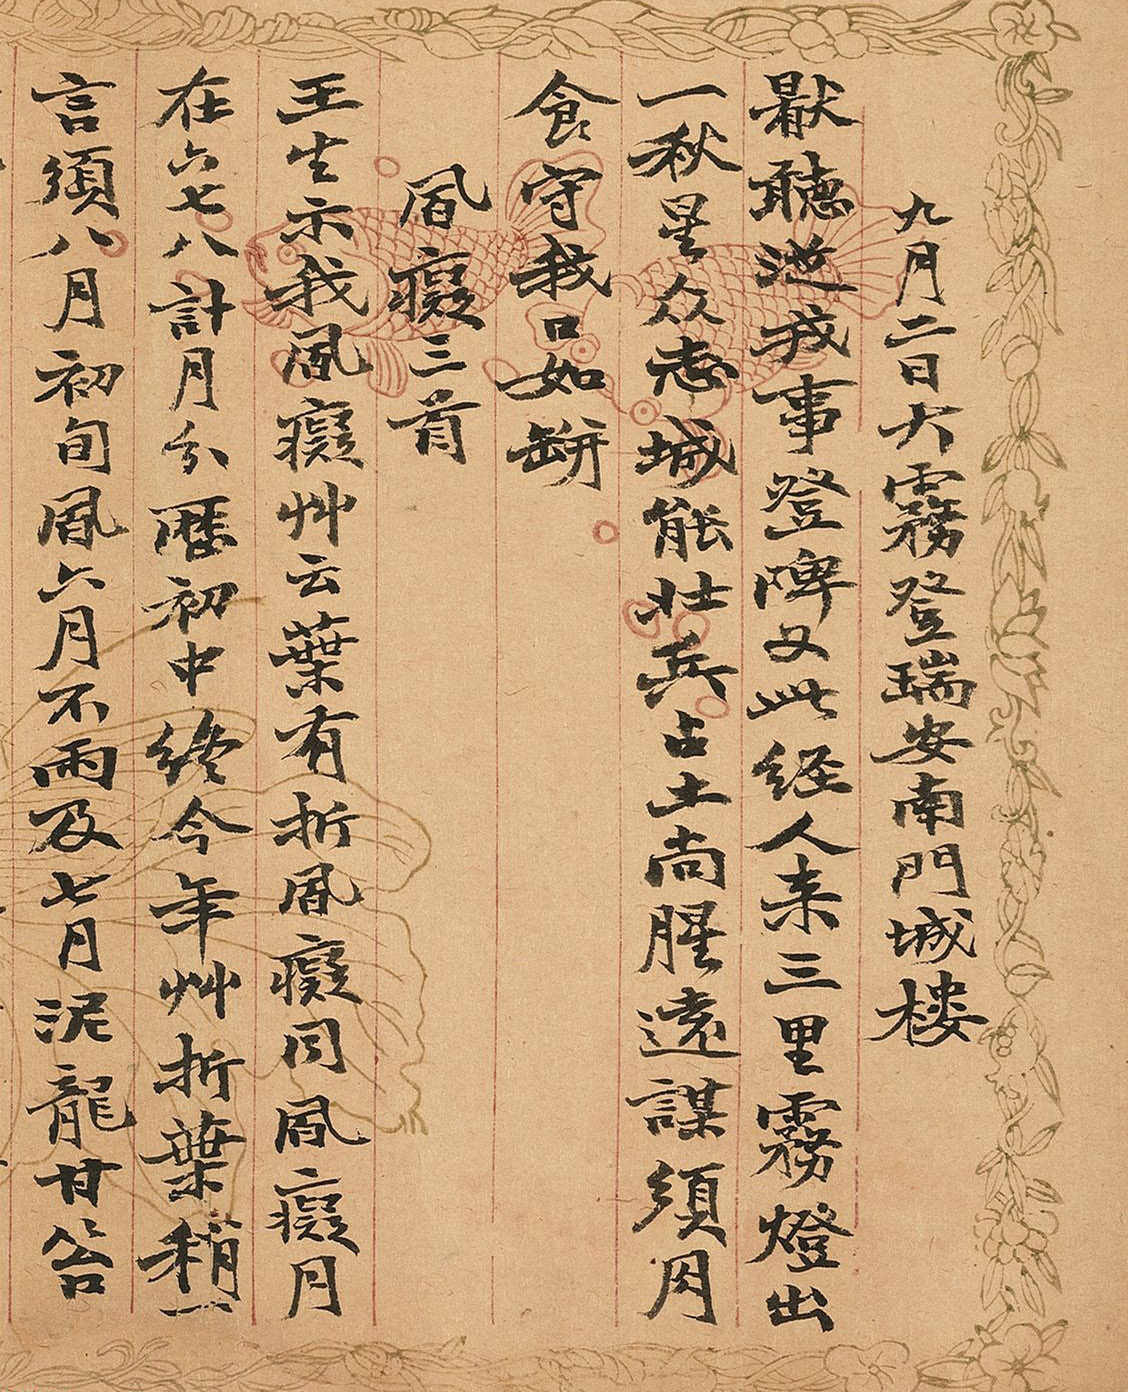 九月二日大霧登瑞安南門城楼
猒聽戎事登陴又此经人来三里霧燈出
一秋星众志城能壮兵占土尚腥遠謀須肉
食守我口如缾
風癡三首
王生示我風癡艸云葉有折風癡同風癡月
在六七八計月分曆初中終今年艸折葉稍一
言須八月初旬風六月不雨及七月泥龍甘答